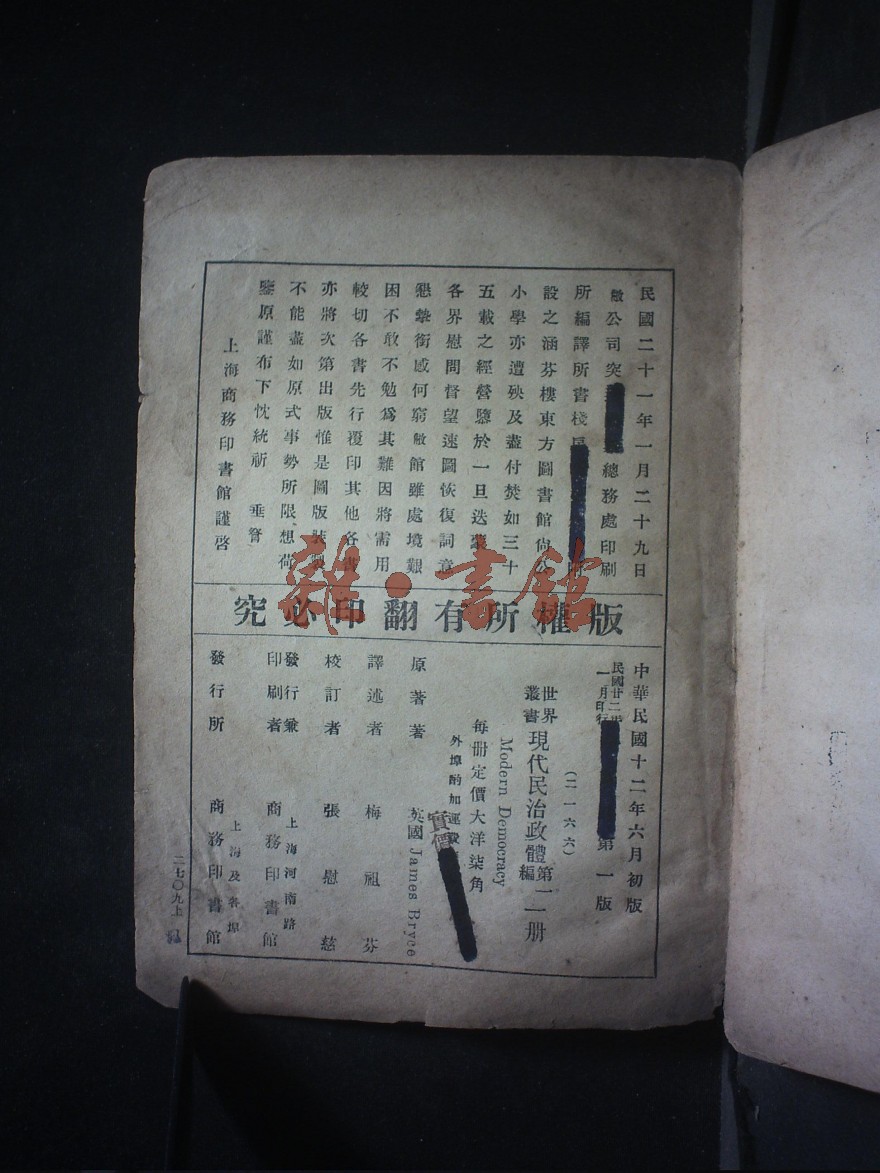 民國二十一年一月二十九日
敝公司突 總務處印刷
所編譯所書棧
設之涵芬樓東方圖書館尙公
小學亦遭殃及盡付焚如三十
五載之經營隳於一旦迭蒙
各界慰問督望速圖恢復詞意
懇摯銜感何窮敝館雖處境艱
困不敢不勉爲其難因將需用
較切各書先行覆印其他各書
亦將次第出版惟是圖版裝製
不能盡如原式事勢所限想荷
鑒原謹布下忱統祈 垂詧
上海商務印書館謹啓
雜·書館
版權所有翻印必究
中華民國十二年六月初版
民國廿二
一月印行 第一版
(二一六六)
世界叢書 現代民治政體 第二編 一册
Modern Democracy
每册定價大洋柒角
外埠酌加運費
實價
原著者 英國 James Bryce
譯述者 梅祖芬
校訂者 張慰慈
發行兼印刷者 上海河南路 商務印書館
發行所 上海及各埠 商務印書館
二七〇九上